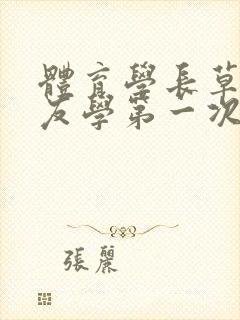 體育學長草
友學第一次
張麗